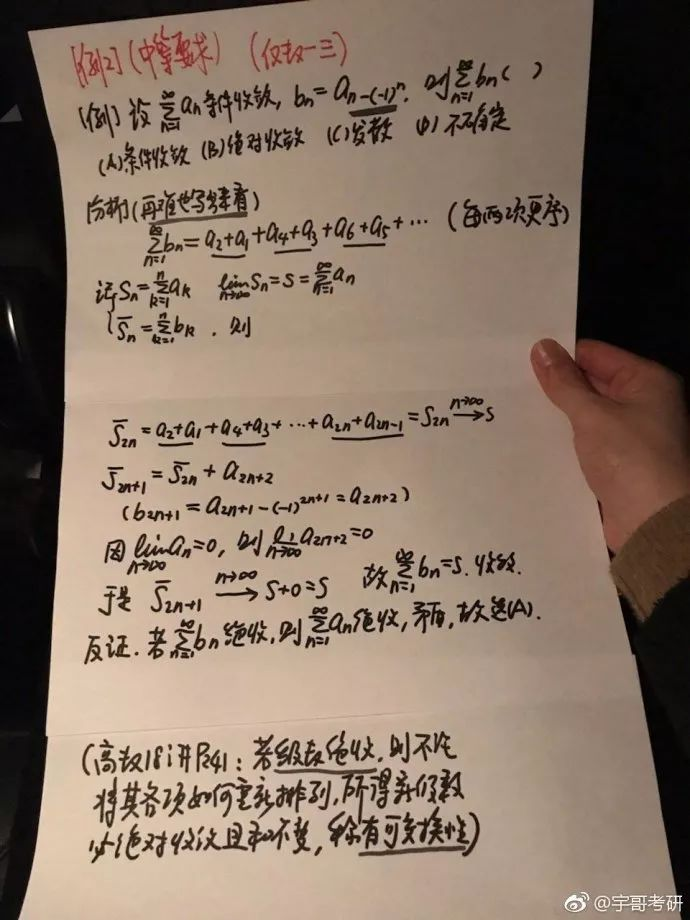 [例2](中等要求) (仅数一三)
[例] 设 ∑_{n=1}^{∞} a_n 条件收敛, b_n = a_{n-(-1)^n}. 则 ∑_{n=1}^{∞} b_n ( )
(A)条件收敛 (B)绝对收敛 (C)发散 (D)不确定
[分析](再难也写出来看)
∑_{n=1}^{∞} b_n = a_2+a_1+a_4+a_3+a_6+a_5+… (每两项更序)
记 S_n = ∑_{k=1}^{n} a_k lim_{n→∞} S_n = S = ∑_{n=1}^{∞} a_n
S̄_n = ∑_{k=1}^{n} b_k . 则
S̄_{2n} = a_2+a_1+a_4+a_3+…+a_{2n}+a_{2n-1} = S_{2n} →^{n→∞} S
S̄_{2n+1} = S̄_{2n} + a_{2n+2}
(b_{2n+1} = a_{2n+1-(-1)^{2n+1}} = a_{2n+2})
因 lim_{n→∞} a_n = 0, 则 lim_{n→∞} a_{2n+2} = 0
于是 S̄_{2n+1} →^{n→∞} S+0=S 故 ∑_{n=1}^{∞} b_n = S. 收敛.
反证. 若 ∑_{n=1}^{∞} b_n 绝收, 则 ∑_{n=1}^{∞} a_n 绝收, 矛盾, 故选(A).
(高数18讲P241: 若级数绝收, 则不论
将其各项如何重新排列, 所得新级数
必绝对收敛且和不变, 称有可交换性)
@宇哥考研